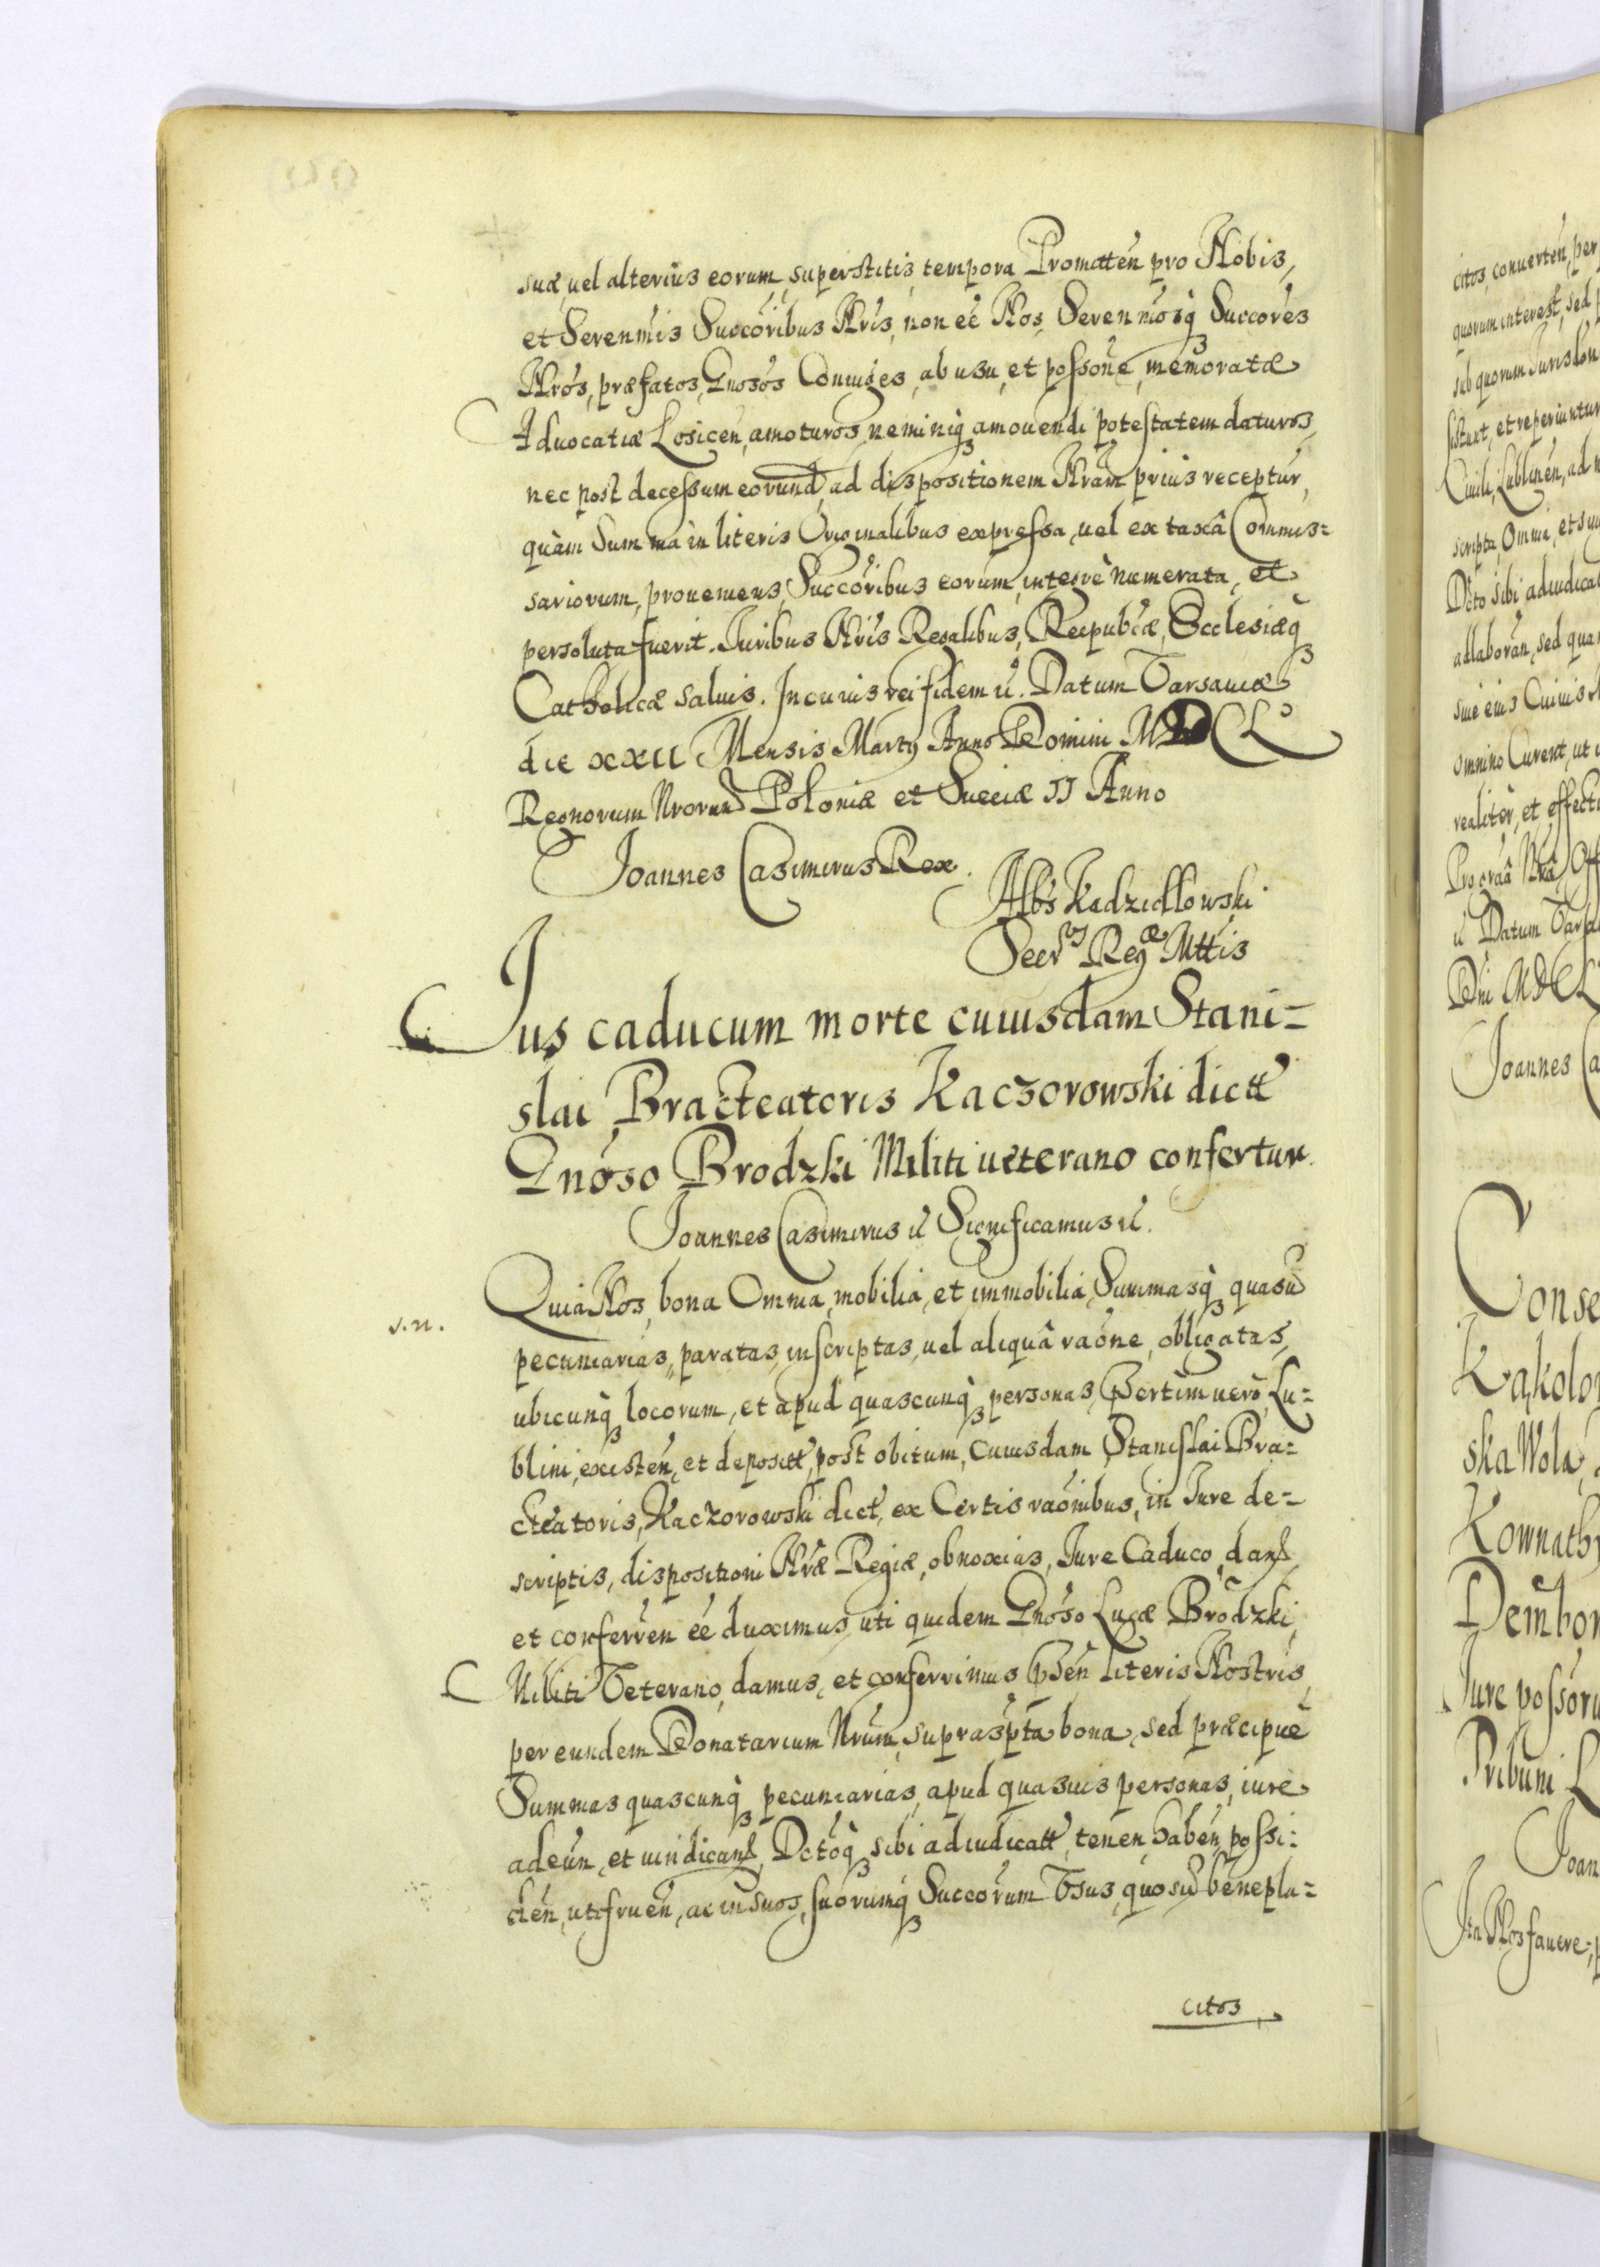 suæ, uel alterius eorum, superstitis, tempora Promitten̄ pro Nobis,
et Seren̄mis Succōribus N̄ris, non eē Nos, Seren̄mosq̨ Succores
N̄ros, præfatos, Gnōsos Coniuges, ab usu, et possōne, memoratæ
Aduocatiæ Losicen̄, amoturos, neminiq̨ amouendi potestatem daturos,
nec post decessum eorund̄, ad dispositionem N̄ram prius receptur̄,
quàm Summa in literis Originalibus expressa, uel ex taxâ Commis=
sariorum, proueniens, Succōribus eorum, integrè numerata, et
persoluta fuerit. Iuribus N̄ris Regalibus, Reipub̄cæ, Ecclesiæq̨
Catholicæ saluis. In cuius rei fidem ec̄. Datum Varsauiæ
die XXII Mensis Martij Anno Domini MDCLo
Regnorum Nrorum Poloniæ et Sueciæ II Anno
Joannes Casimirus Rex.
Alb̄s Kadzidlowski
Secr9 Regæ Mttis
Jus caducum morte cuiusdam Stani=
slai Bracteatoris Kaczorowski dictt̄
Gnōso Brodzki Militi ueterano confertur.
Joannes Casimirus ec̄ Significamus ec̄.
Quia Nos, bona Omnia, mobilia, et immobilia, Summasq̨ quasuis
s.n.
pecuniarias, paratas, inscriptas, uel aliquâ raōne, obligatas,
ubicunq̨ locorum, et apud quascunq̨ personas, p̄sertim uerò, Lu=
blini, existen̄, et depositt̄, post obitum, cuiusdam Stanislai Bra=
cteatoris, Kaczorowski dict̄, ex Certis raōnibus, in Iure de=
scriptis, dispositioni N̄ræ Regiæ, obnoxias, Iure Caduco, dand̄,
et conferren̄ eē duximus, uti quidem Gnōso Lucæ Brodzki,
Militi Veterano, damus, et conferrimus p̄sen̄ literis Nostris,
per eundem Donatarium Nrum, suprasp̄ta bona, sed præcipuè
Summas quascunq̨ pecuniarias, apud quasuis personas, iure
adeun̄, et uindicand̄, Dctoq̨ sibi adiudicatt̄, tenen̄, haben̄, possi=
den̄, utifruen̄, ac in suos, suorumq̨ Succorum Vsus, quosuis benepla=
citos,
citos, conuerten̄, per
quorum interest, sed
sub quorum
sistunt, et reperiuntur
Ciuili, Lublinen̄, ad
scripta, Omnia, et
Dcto sibi adiudica
allaboran̄, sed qua
siue eius Cuiuis
omnino Curent, ut
realiter, et effectu
Pro grāa Nrā, Off
ec̄ Datum Varsa
Dni MDCL
Joannes Ca
Conse
Kąkolo
ska Wola,
Kownath
Dembo
Iure possōru
Tribuni L
Joan
Ita Nos fauere,